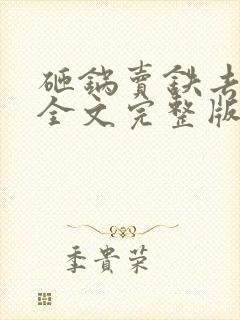 砸鍋賣鉄去
全文完整版
季貴荣